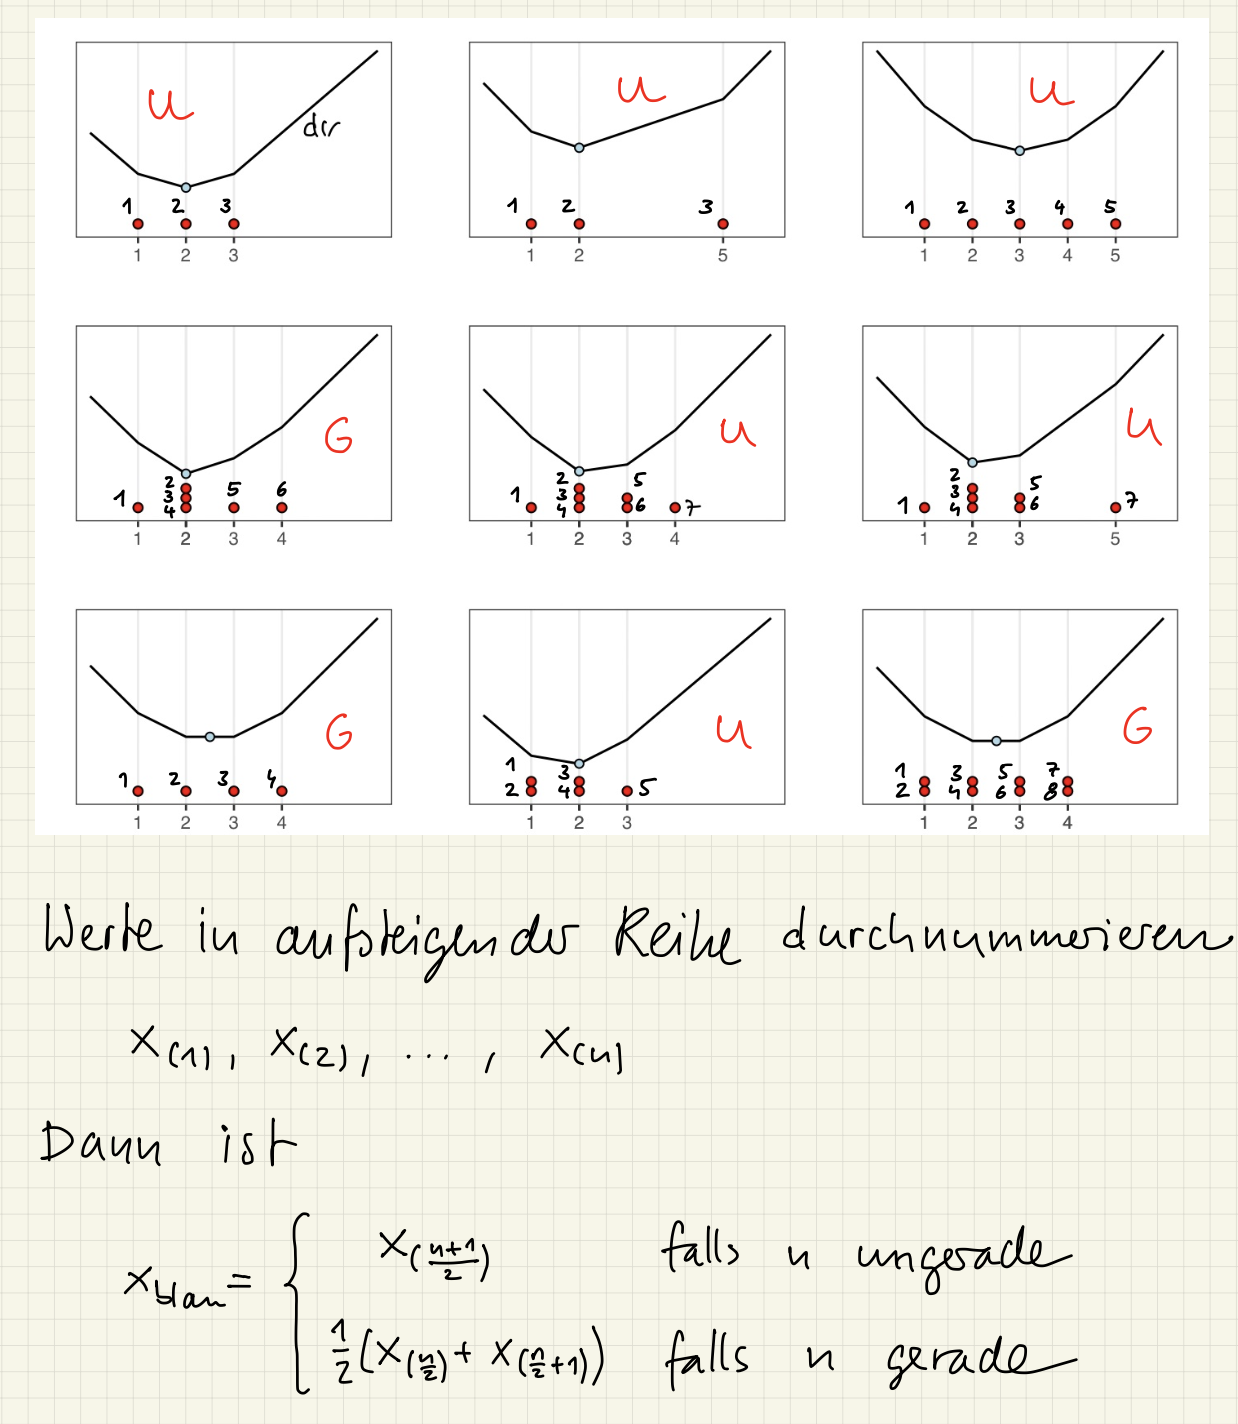 U U U
dir
1 2 3 1 2 3 1 2 3 4 5
1 2 3 1 2 5 1 2 3 4 5
G U U
1 2 3 4 5 6 1 2 3 4 5 6 7 1 2 3 4 5 6 7
1 2 3 4 1 2 3 4 1 2 3 5
G U G
1 2 3 4 1 2 3 4 5 1 2 3 4 5 6 7 8
1 2 3 4 1 2 3 1 2 3 4
Werte in aufsteigender Reihe durchnummerieren
x(1), x(2), ... , x(n)
Dann ist
x_blau = { x((n+1)/2) falls n ungerade
1/2 (x(n/2) + x(n/2+1)) falls n gerade